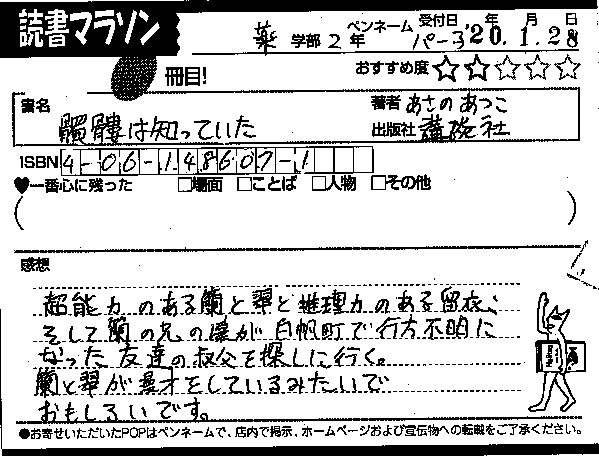 読書マラソン
薬 学部 2 年
ペンネーム パーコ
受付日 '20 年 1 月 28 日
冊目!
おすすめ度 ☆☆☆☆☆
書名 髑髏は知っていた
著者 あさのあつこ
出版社 講談社
ISBN 4-06-148607-1
♥一番心に残った □場面 □ことば □人物 □その他
( )
感想
超能力のある蘭と翠と推理力のある留衣、
そして蘭の兄の凜が白帆町で行方不明に
なった友達の叔父を探しに行く。
蘭と翠が漫才をしているみたいで
おもしろいです。
●お寄せいただいたPOPはペンネームで、店内で掲示、ホームページおよび宣伝物への転載をご了承ください。